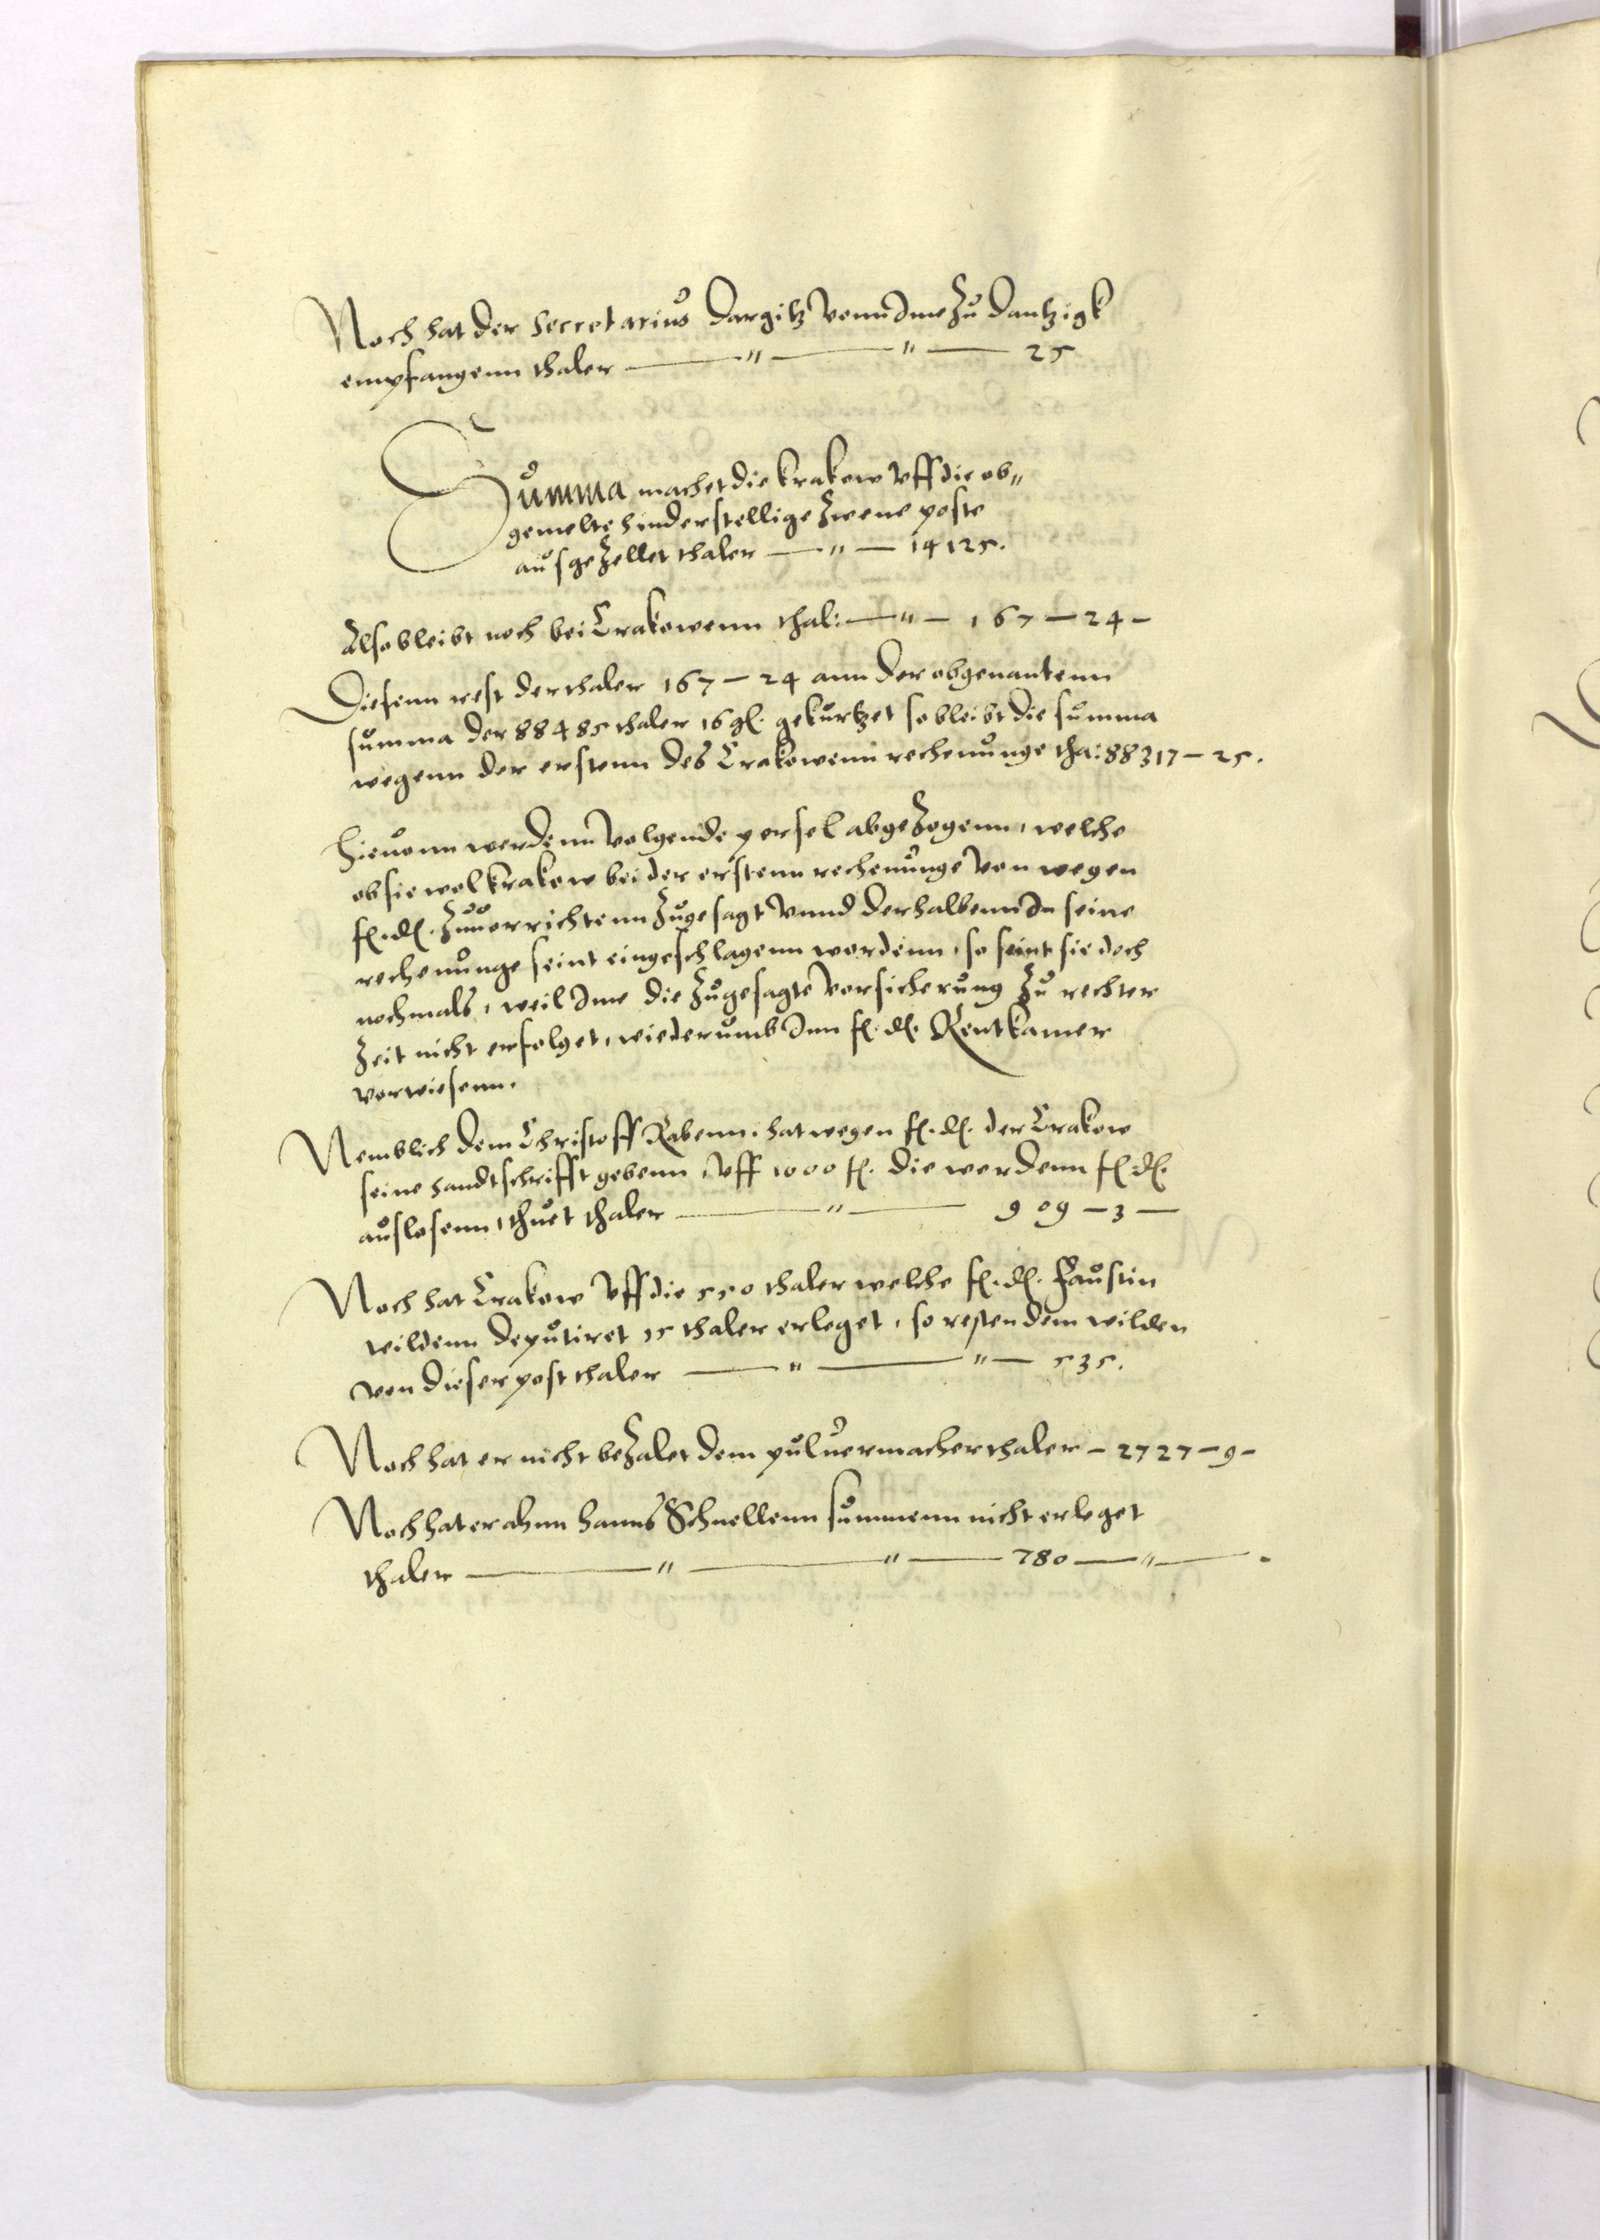 Noch hat der Secretarius Dargitz vonn Ime zu Dantzigk
empfangenn thaler — " — " — 25
Summa machet die Krakow vff die ob„
gemelte hinderstellige zwene poste
ausgezellet thaler — " — 14125.
Also bleibt noch bei Crakowenn thal: — " — 167 — 24 —
Diesenn rest der thaler 167 — 24 ann der obgenantenn
summa der 88485 thaler 16 gl. gekurtzet so bleibt die summa
wegenn der erstenn des Crakowenn rechenunge tha: 88317 — 25.
Hieuonn werdenn volgende persel abgezogenn, welche
ob sie wol Krakow bei der erstenn rechenunge von wegen
f. d. zuuorrichtenn zugesagt vnnd derhalbenn In seine
rechenunge seint eingeschlagenn wordenn, so seint sie doch
nochmals, weil Ime die zugesagte vorsicherung zu rechter
zeit nicht erfolget, wiederumb Inn f. d. Rentkamer
vorwiesenn.
Nemblich dem Christoff Rabenn. hat wegen f. d. der Crakow
seine handtschrifft gebenn, vff 1000 f. die werdenn f. d.
auslosenn, thuet thaler — " — 909 — 3 —
Noch hat Crakow vff die 550 thaler welche f. d. Faustin
wildenn deputiret 15 thaler erleget, so resten dem wilden
von dieser post thaler — " — " — 535.
Noch hat er nicht bezalet dem puluermacher thaler — 2727 — 9 —
Noch hat er ahnn Hanns Schnellenn summenn nicht erleget
thaler — " — " — 780 — " — .